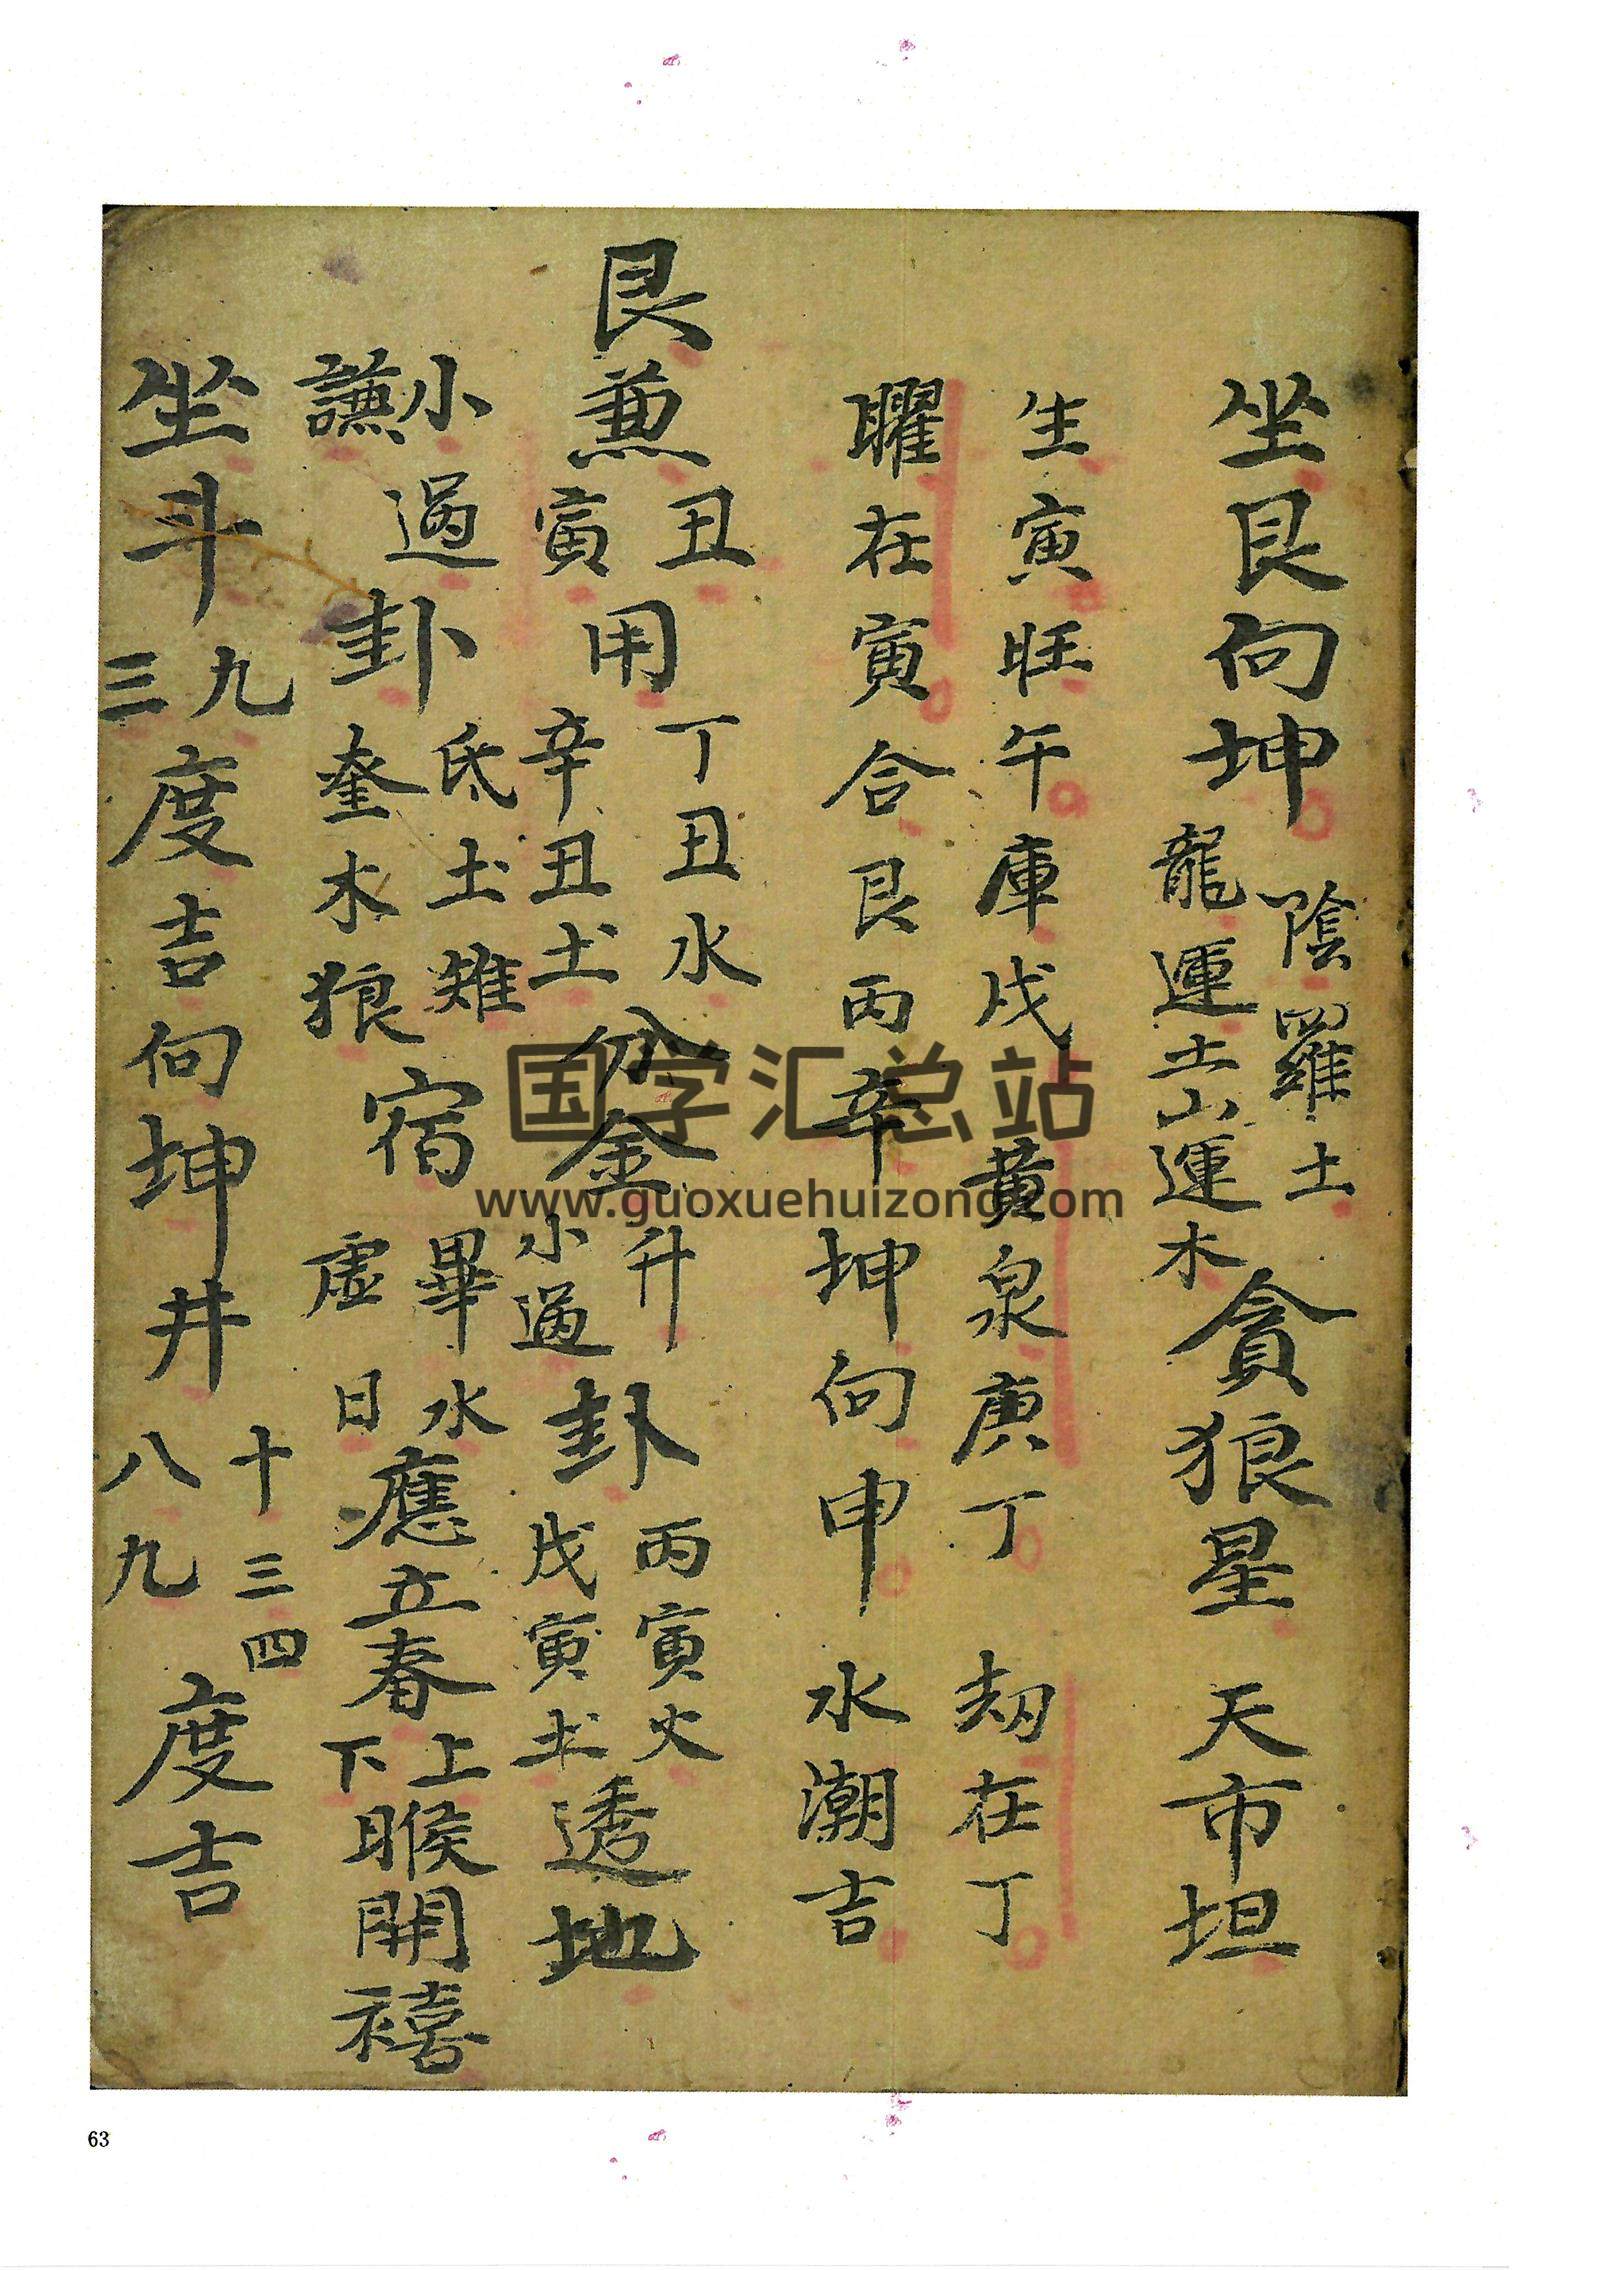 坐艮向坤 陰羅土 龍運土山運木 貪狼星 天市垣
生寅旺午庫戌 黃泉庚丁 劫在丁
曜在寅 合艮丙辛 坤向申 水潮吉
艮兼 丑寅 用 丁丑水 辛丑土 分金 升小過 卦 丙寅火 戊寅土 透地
小過謙 卦 氐土雉 奎木狼 宿 畢水 虛日 應立春 上下 睺開禧
坐斗 九三 度吉向坤井 十三四 八九 度吉
国学汇总站
www.guoxuehuizong.com
63